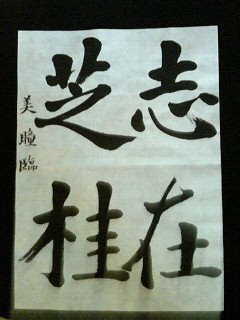 志在
芝桂
美瞳臨